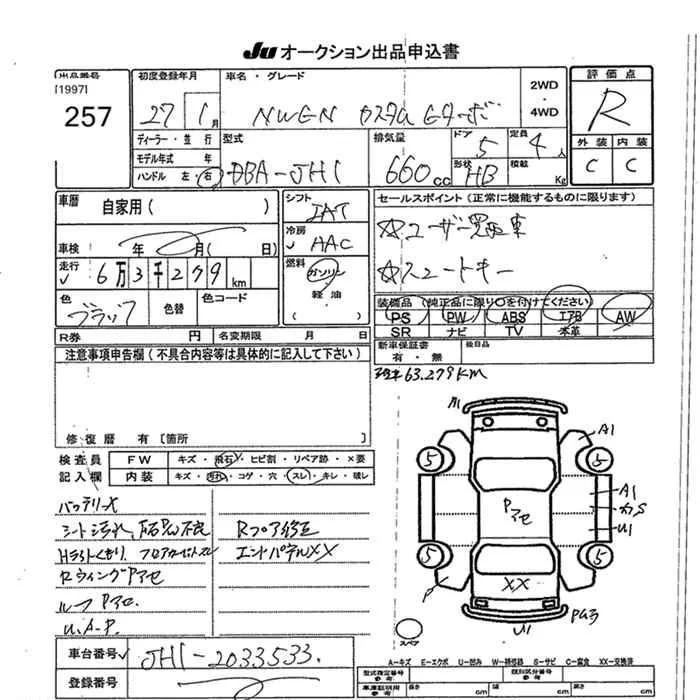 JU オークション出品申込書
出品番号
[1997]
257
初度登録年月
27 年 1 月
車名・グレード
NWGN カスタム Gターボ
2WD
・
4WD
評価点
R
外装 内装
C C
ディーラー・並行
モデル年式 年
ハンドル 左・右
型式
DBA-JH1
排気量
660cc
ドア
5
形状
HB
定員
4人
積載
Kg
車歴
自家用( )
車検 年 月( 日)
走行
6万3千279km
色
ブラック
色替
色コード
R券 円
名変期限 月 日
シフト
IAT
冷房
AAC
燃料
ガソリン
軽油
( )
セールスポイント(正常に機能するものに限ります)
☆ユーザー買取車
☆スマートキー
装備品 (純正品に限り○を付けてください)
PS PW ABS エアB AW
SR ナビ TV 本革
新車保証書
有・無
後日品
注意事項申告欄(不具合内容等は具体的に記入して下さい)
修復歴 有 [箇所 ]
63.279KM
検査員
記入欄
FW キズ・飛石・ヒビ割・リペア跡・×要
内装 キズ・汚れ・コゲ・穴・スレ・キレ・破レ
バッテリーX
シート汚れ、
Rフロア修正
エンドパネルXX
RウィングPアセ
ルーフPアセ.
U.A.P.
A1
A1
5 5
A1
Pアセ
U1
5 5
XX
P
U1
スペア
車台番号
JH1-2033533.
登録番号
A-キズ E-エクボ U-凹み W-補修跡 S-サビ C-腐食 XX-交換済
型式指定番号
参考
類別区分番号
参考
車庫証明用
参考
長さ cm
幅 cm
高さ cm